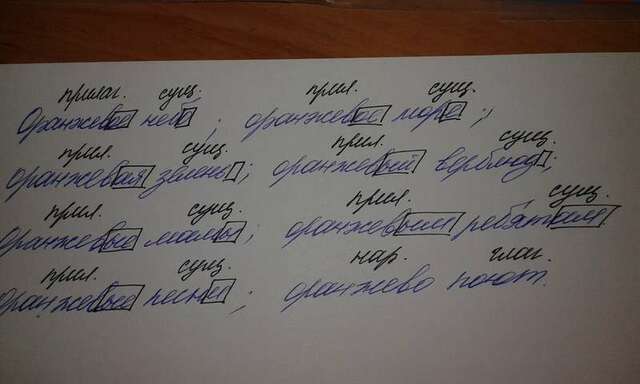 прилаг. сущ. прил. сущ.
Оранжевое небо; оранжевое море;
прил. сущ. прил. сущ.
оранжевая зелень; оранжевый верблюд;
прил. сущ. прил. сущ.
оранжевые мамы; оранжевым ребятам
прил. сущ. нар. глаг.
оранжевые песни; оранжево поют.